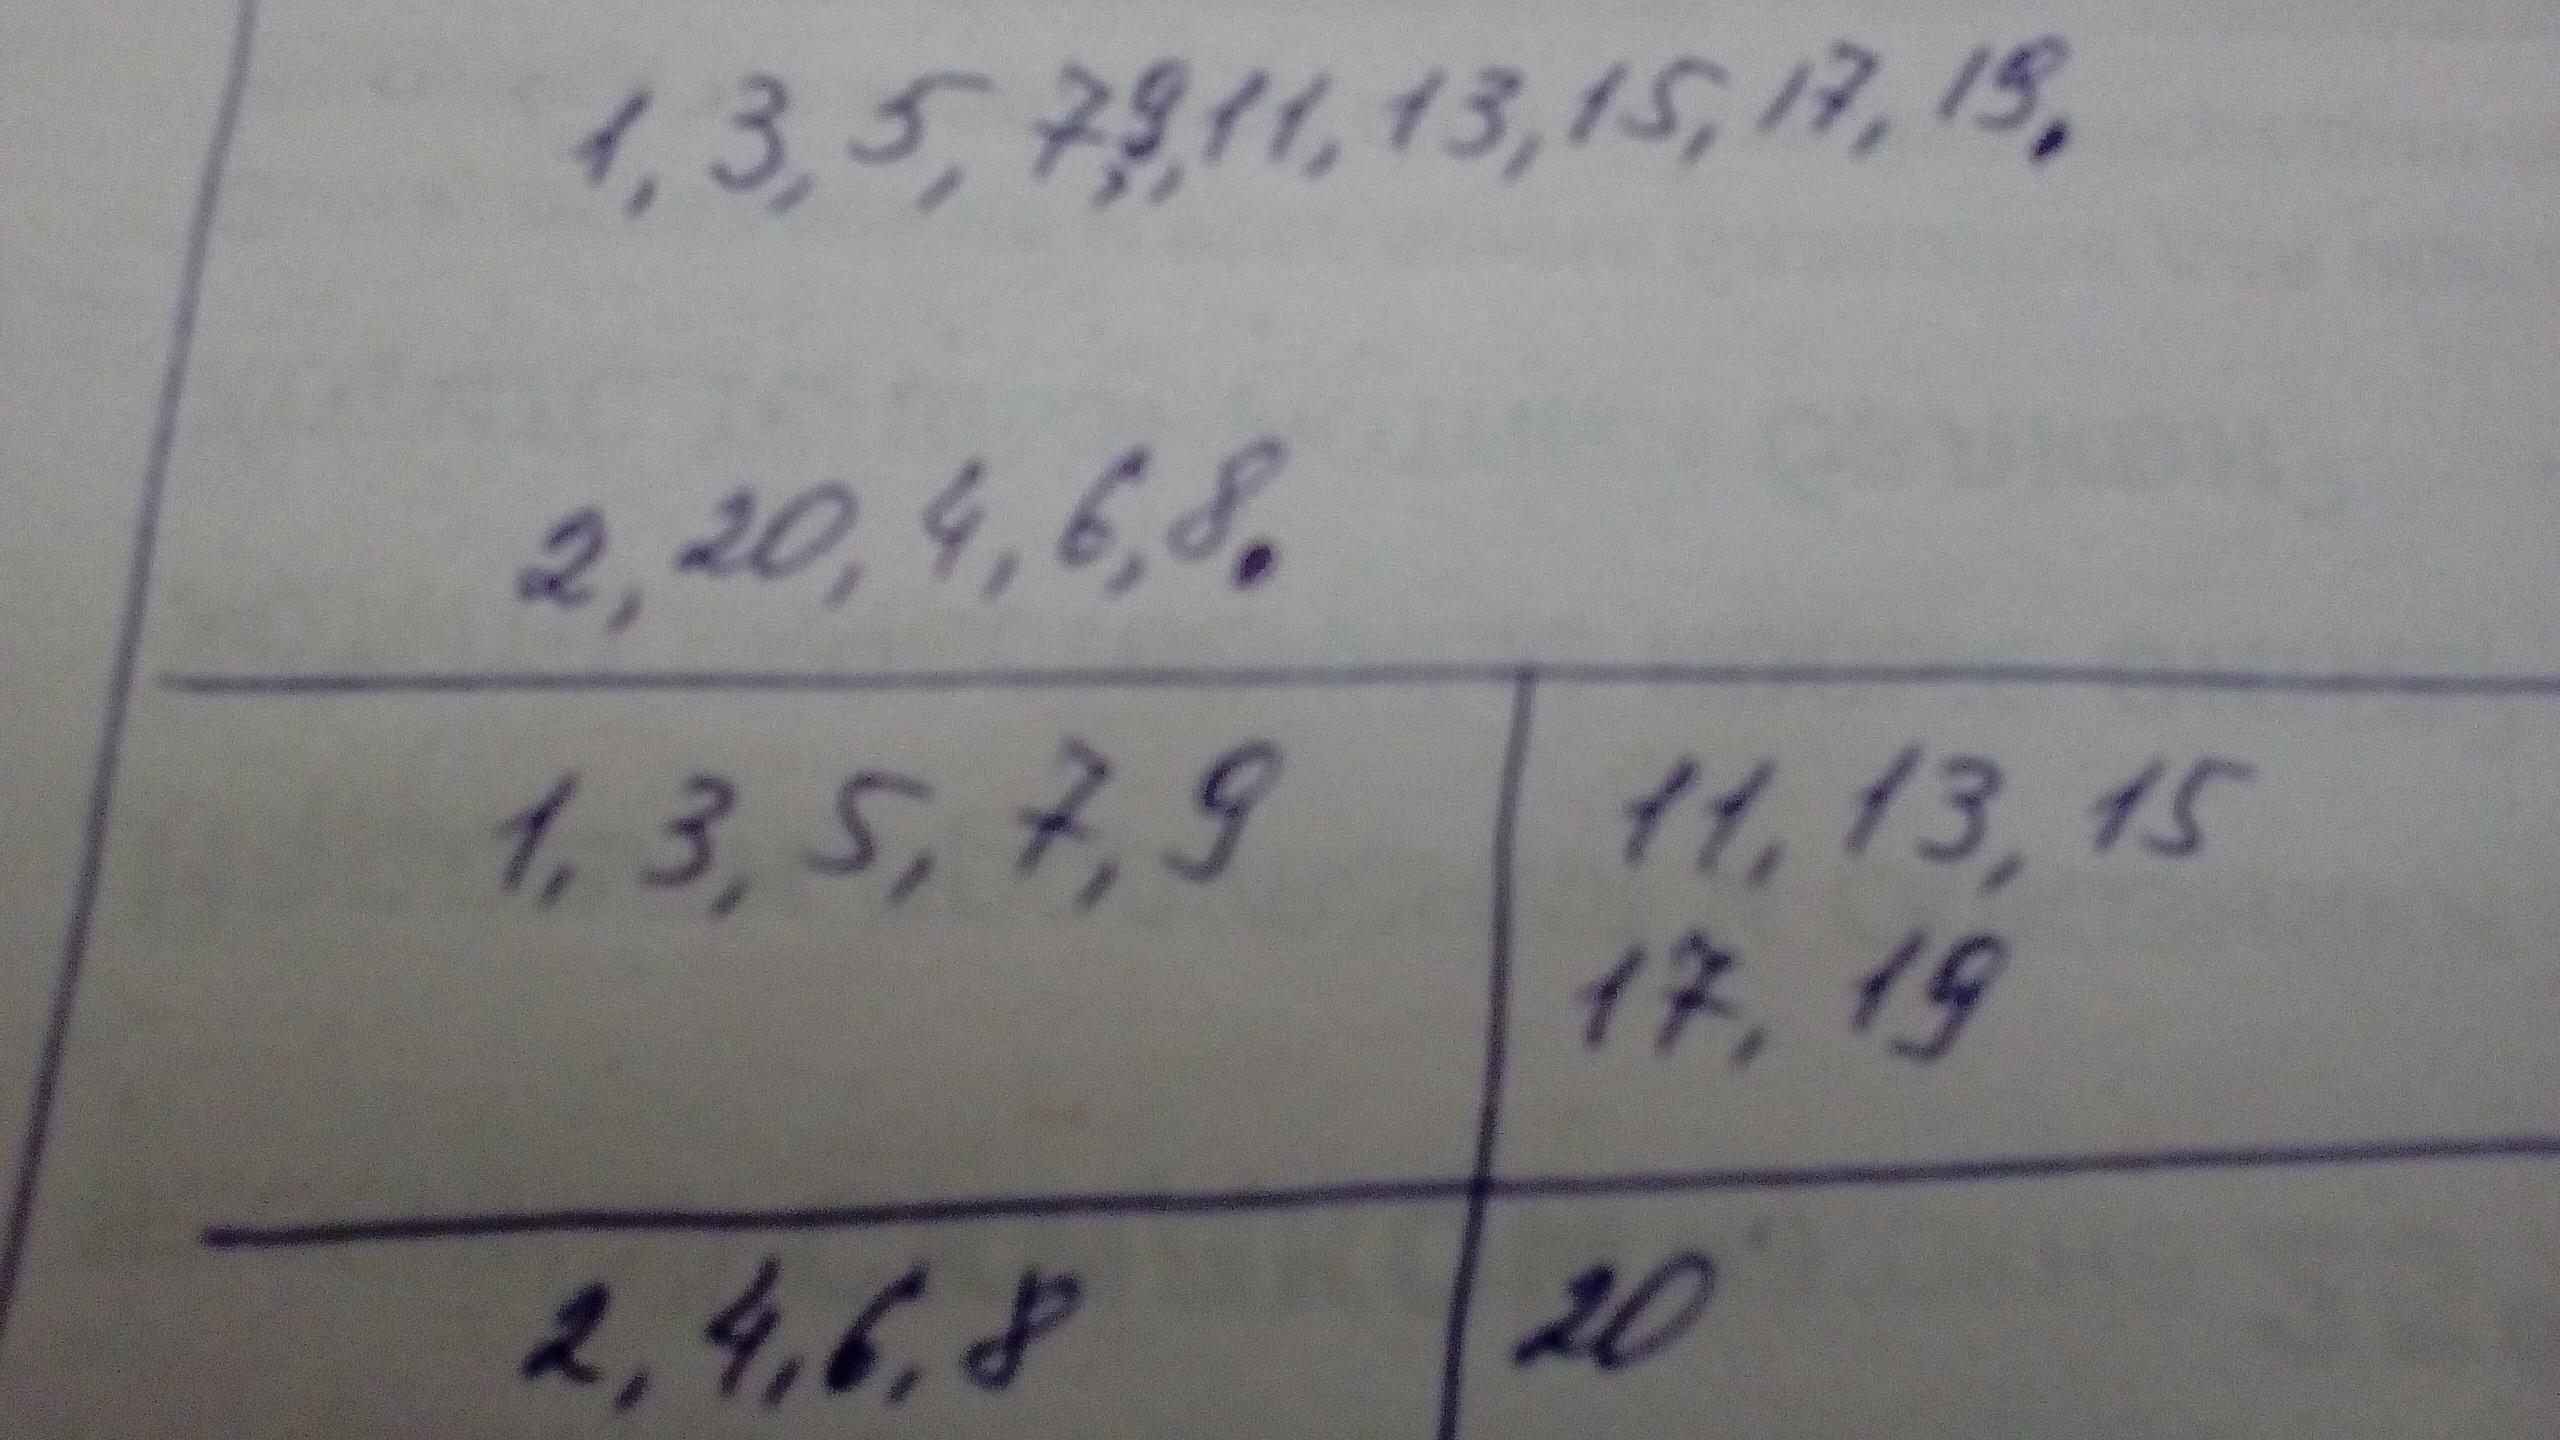 1, 3, 5, 7, 9, 11, 13, 15, 17, 19.
2, 20, 4, 6, 8.
1, 3, 5, 7, 9
11, 13, 15
17, 19
2, 4, 6, 8
20